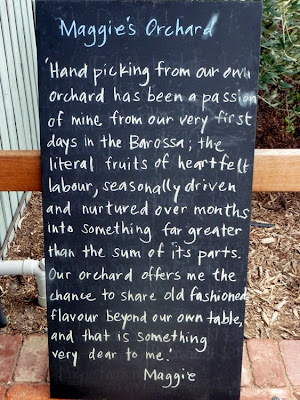 Maggie's Orchard
'Hand picking from our own
orchard has been a passion
of mine from our very first
days in the Barossa; the
literal fruits of heartfelt
labour, seasonally driven
and nurtured over months
into something far greater
than the sum of its parts.
Our orchard offers me the
chance to share old fashioned
flavour beyond our own table,
and that is something
very dear to me.'
Maggie